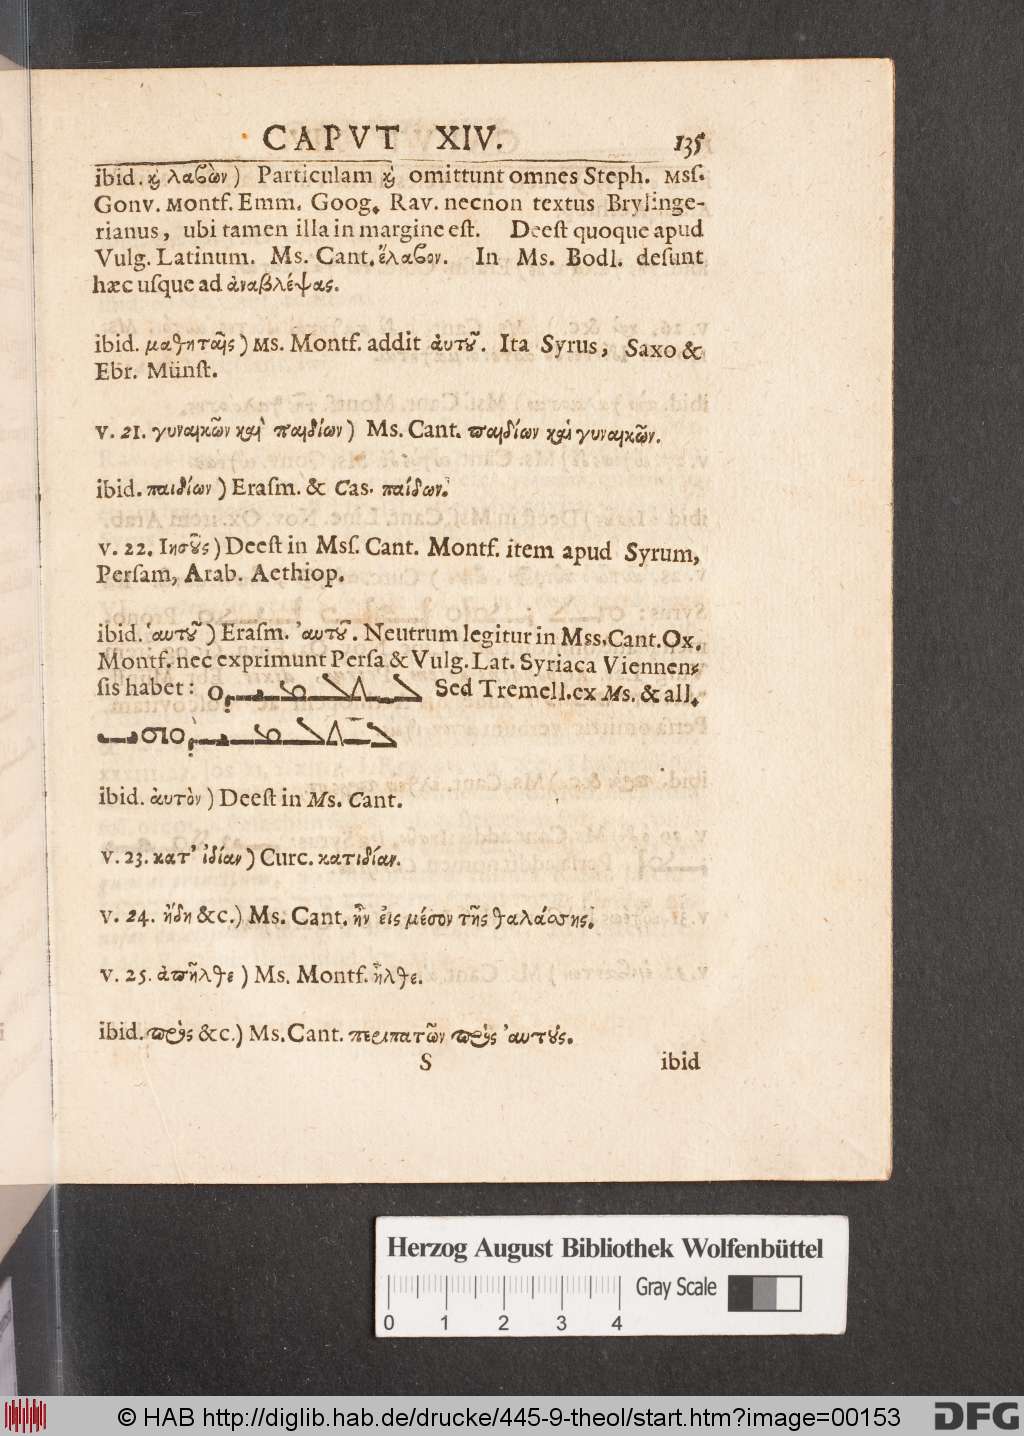 CAPVT XIV. 135
ibid. ϗ λαβὼν) Particulam ϗ omittunt omnes Steph. Mſſ.
Gonv. Montf. Emm. Goog. Rav. necnon textus Brylinge-
rianus, ubi tamen illa in margine eſt. Deeſt quoque apud
Vulg. Latinum. Ms. Cant. ἔλαβον. In Ms. Bodl. deſunt
hæc uſque ad ἀναβλέψας.
ibid. μαθηταῖς) Ms. Montf. addit ἀυτȣ͂. Ita Syrus, Saxo &
Ebr. Münſt.
v. 21. γυναικῶν καὶ παιδίων) Ms. Cant. παιδίων καὶ γυναικῶν.
ibid. παιδίων) Eraſm. & Cas. παίδων.
v. 22. Ιησȣ͂ς) Deeſt in Mſſ. Cant. Montf. item apud Syrum,
Perſam, Arab. Aethiop.
ibid. ἁυτȣ͂) Eraſm. ἀυτȣ͂. Neutrum legitur in Mss. Cant. Ox.
Montf. nec exprimunt Perſa & Vulg. Lat. Syriaca Viennen-
ſis habet: ܠܬܠܡܝܕܘ Sed Tremell. ex Ms. & all.
ܠܬܠܡܝܕܘܗܝ
ibid. ἀυτὸν) Deeſt in Ms. Cant.
v. 23. κατ' ἰδίαν) Curc. κατιδίαν.
v. 24. ἤδη &c.) Ms. Cant. ἦν εἰς μέσον τῆς θαλάσσης.
v. 25. ἀπῆλθε) Ms. Montf. ἦλθε.
ibid. πρὸς &c.) Ms. Cant. περιπατῶν πρὸς ἀυτȣ́ς.
S ibid
Herzog August Bibliothek Wolfenbüttel
Gray Scale
0 1 2 3 4
© HAB http://diglib.hab.de/drucke/445-9-theol/start.htm?image=00153 DFG